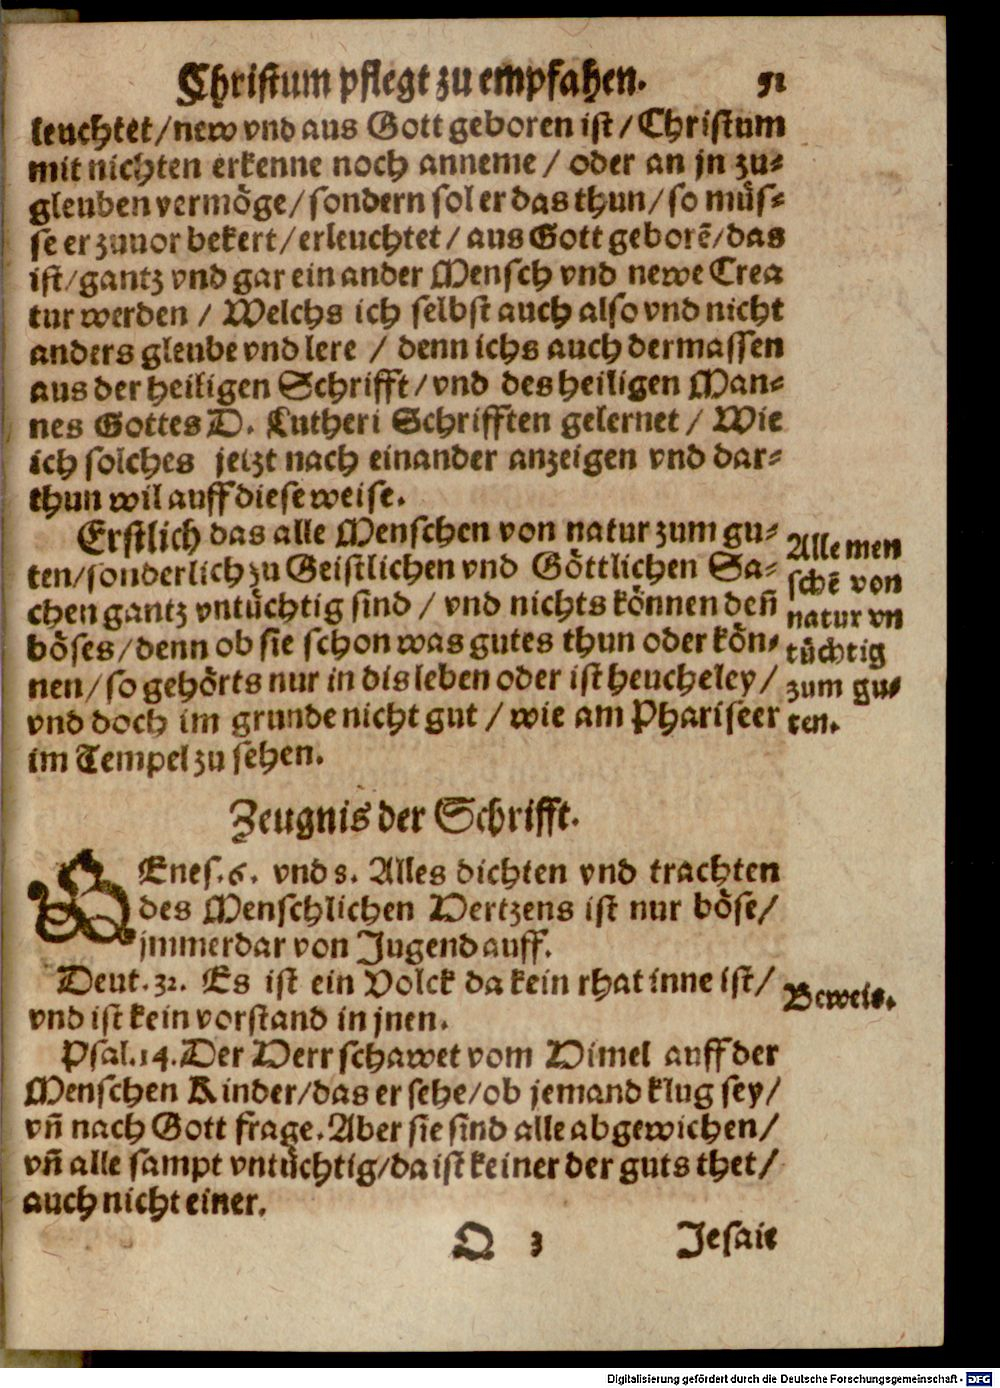 Christum pflegt zu empfahen. 51
leuchtet/new vnd aus Gott geboren ist/Christum
mit nichten erkenne noch anneme/ oder an jn zu-
gleuben vermöge/sondern sol er das thun/so müs-
se er zuuor bekert/erleuchtet/ aus Gott geborē/das
ist/gantz vnd gar ein ander Mensch vnd newe Crea
tur werden / Welchs ich selbst auch also vnd nicht
anders gleube vnd lere / denn ichs auch dermassen
aus der heiligen Schrifft/vnd des heiligen Man-
nes Gottes D. Lutheri Schrifften gelernet/ Wie
ich solches jetzt nach einander anzeigen vnd dar-
thun wil auff diese weise.
Erstlich das alle Menschen von natur zum gu-
ten/sonderlich zu Geistlichen vnd Göttlichen Sa-
chen gantz vntüchtig sind / vnd nichts können deñ
böses/denn ob sie schon was gutes thun oder kön-
nen/so gehörts nur in dis leben oder ist heucheley/
vnd doch im grunde nicht gut / wie am Phariseer
im Tempel zu sehen.
Alle men
schē von
natur vn
tüchtig
zum gu-
ten.
Zeugnis der Schrifft.
GEnes.6. vnd 8. Alles dichten vnd trachten
des Menschlichen Hertzens ist nur böse/
jmmerdar von Jugend auff.
Deut.32. Es ist ein Volck da kein rhat inne ist/
vnd ist kein vorstand in jnen.
Beweis.
Psal.14.Der HErr schawet vom Himel auff der
Menschen Kinder/das er sehe/ob jemand klug sey/
vñ nach Gott frage.Aber sie sind alle abgewichen/
vñ alle sampt vntüchtig/da ist keiner der guts thet/
auch nicht einer.
O 3 Jesaie
Digitalisierung gefördert durch die Deutsche Forschungsgemeinschaft - DFG